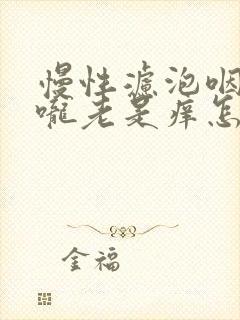 慢性滤泡咽
咙老是痒怎
金福